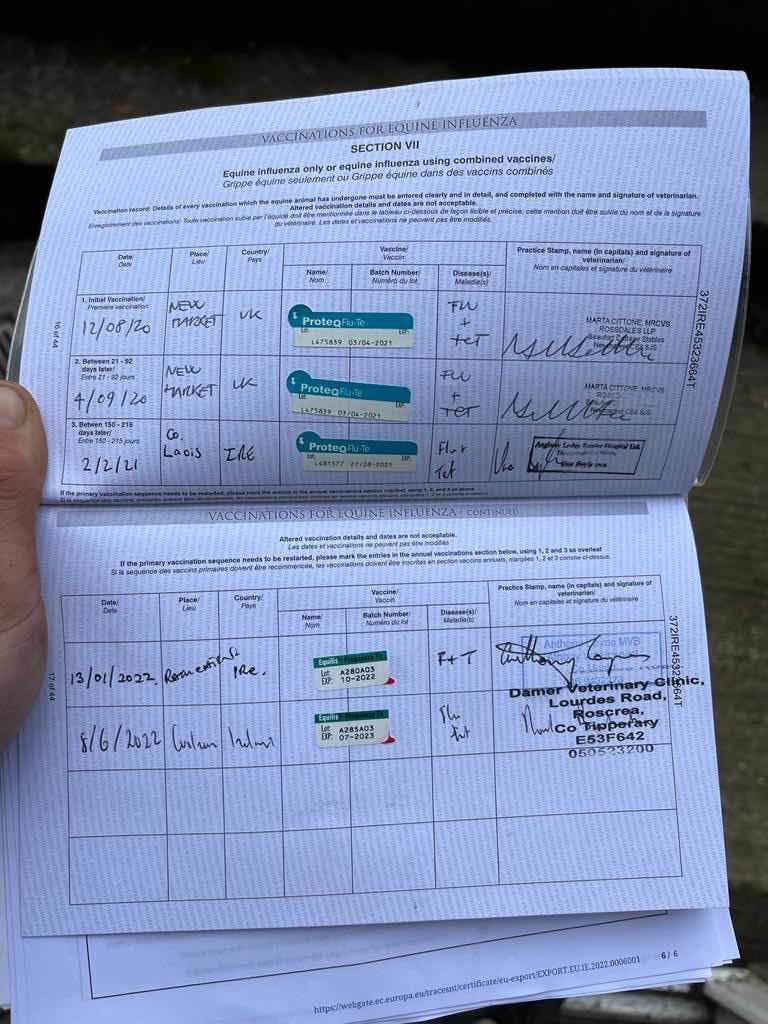 VACCINATIONS FOR EQUINE INFLUENZA
SECTION VII
Equine influenza only or equine influenza using combined vaccines/
Grippe équine seulement ou Grippe équine dans des vaccins combinés
Vaccination record: Details of every vaccination which the equine animal has undergone must be entered clearly and in detail, and completed with the name and signature of veterinarian.
Altered vaccination details and dates are not acceptable.
Enregistrement des vaccinations: Toute vaccination subie par l'équidé doit être mentionnée dans le tableau ci-dessous de façon lisible et précise, cette mention doit être suivie du nom et de la signature
du vétérinaire. Les dates et vaccinations ne peuvent pas être modifiés.
Date/ Place/ Country/ Vaccine/ Practice Stamp, name (in capitals) and signature of
Date Lieu Pays Vaccin veterinarian/
Name/ Batch Number/ Disease(s)/ Nom en capitales et signature du vétérinaire
Nom Numéro du lot Maladie(s)
1. Initial Vaccination/
Première vaccination
12/08/20 NEW MARKET UK ProteqFlu-Te FLU + TET
Lot EXP.
L475839 03/04-2021
MARTA CITTONE, MRCVS
ROSSDALES LLP
Beaufort Stables
2. Between 21 - 92
days later/
Entre 21 - 92 jours
4/09/20 NEW MARKET UK ProteqFlu-Te FLU + TET
L475839 03/04-2021
MARTA CITTONE, MRCVS
3. Between 150 - 215
days later/
Entre 150 - 215 jours
2/2/21 Co. Laois IRE ProteqFlu-Te Flu + Tet
Lot EXP.
L481577
16 of 44
372IRE45323664T
If the primary vaccination sequence needs to be restarted, please mark the entries in the annual vaccinations section below, using 1, 2 and 3 as
VACCINATIONS FOR EQUINE INFLUENZA - CONTINUED
Altered vaccination details and dates are not acceptable.
Les dates et vaccinations ne peuvent pas être modifiés
If the primary vaccination sequence needs to be restarted, please mark the entries in the annual vaccinations section below, using 1, 2 and 3 as overleaf
Date/ Place/ Country/ Vaccine/ Practice Stamp, name (in capitals) and signature of
Date Lieu Pays Vaccin veterinarian/
Name/ Batch Number/ Disease(s)/ Nom en capitales et signature du vétérinaire
Nom Numéro du lot Maladie(s)
13/01/2022 IRe. Equilis F+T
Lot: A280A03
EXP: 10-2022
MVB
8/6/2022 Ireland Equilis Flu Tet
Lot: A285A03
EXP: 07-2023
Damer Veterinary Clinic,
Lourdes Road,
Roscrea,
Co Tipperary
E53F642
050523200
17 of 44
372IRE45323664T
6 / 6
https://webgate.ec.europa.eu/tracesnt/certificate/eu-export/EXPORT.EU.IE.2022.0006001